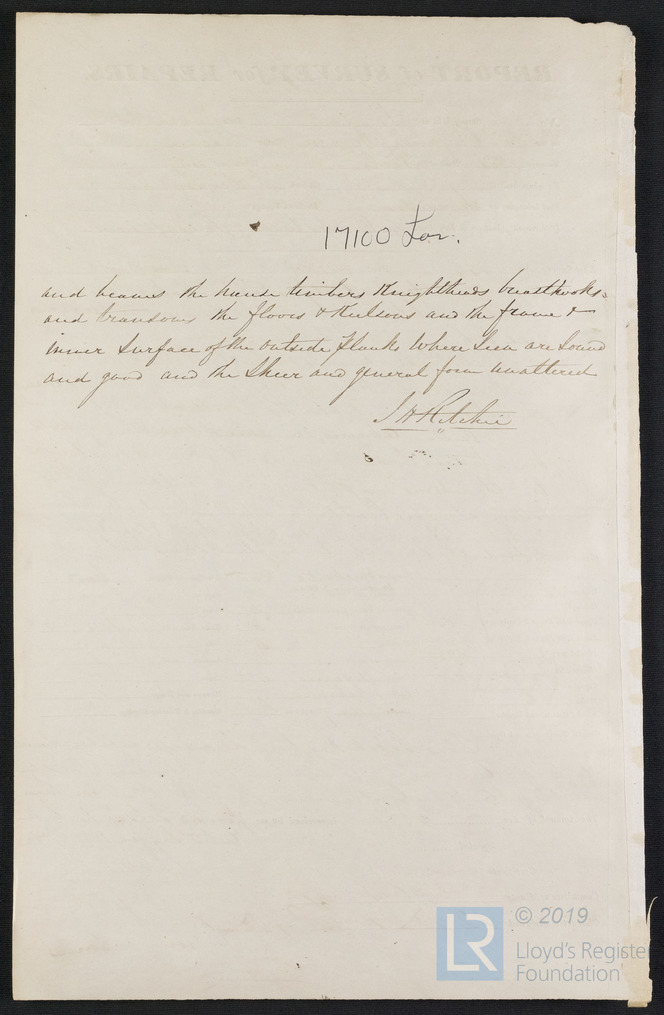 REPORT of SURVEY for REPAIRS.
17100 For.
and beams the hawse timbers Knightheads breasthooks
and transoms the floors & Keelsons and the frame &
inner Surface of the outside planks where seen are Sound
and good and the Sheer and general form unaltered
J H Ritchie
© 2019
LR
Lloyd's Register
Foundation